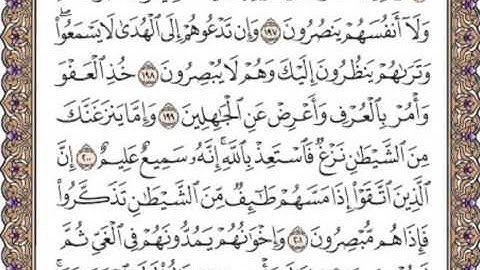 وَلَآ أَنفُسَهُمْ يَنصُرُونَ ١٩٧ وَإِن تَدْعُوهُمْ إِلَى ٱلْهُدَىٰ لَا يَسْمَعُوا۟ ۖ
وَتَرَىٰهُمْ يَنظُرُونَ إِلَيْكَ وَهُمْ لَا يُبْصِرُونَ ١٩٨ خُذِ ٱلْعَفْوَ
وَأْمُرْ بِٱلْعُرْفِ وَأَعْرِضْ عَنِ ٱلْجَٰهِلِينَ ١٩٩ وَإِمَّا يَنزَغَنَّكَ
مِنَ ٱلشَّيْطَٰنِ نَزْغٌ فَٱسْتَعِذْ بِٱللَّهِ ۚ إِنَّهُۥ سَمِيعٌ عَلِيمٌ ٢٠٠ إِنَّ
ٱلَّذِينَ ٱتَّقَوْا۟ إِذَا مَسَّهُمْ طَٰٓئِفٌ مِّنَ ٱلشَّيْطَٰنِ تَذَكَّرُوا۟
فَإِذَا هُم مُّبْصِرُونَ ٢٠١ وَإِخْوَٰنُهُمْ يَمُدُّونَهُمْ فِى ٱلْغَىِّ ثُمَّ